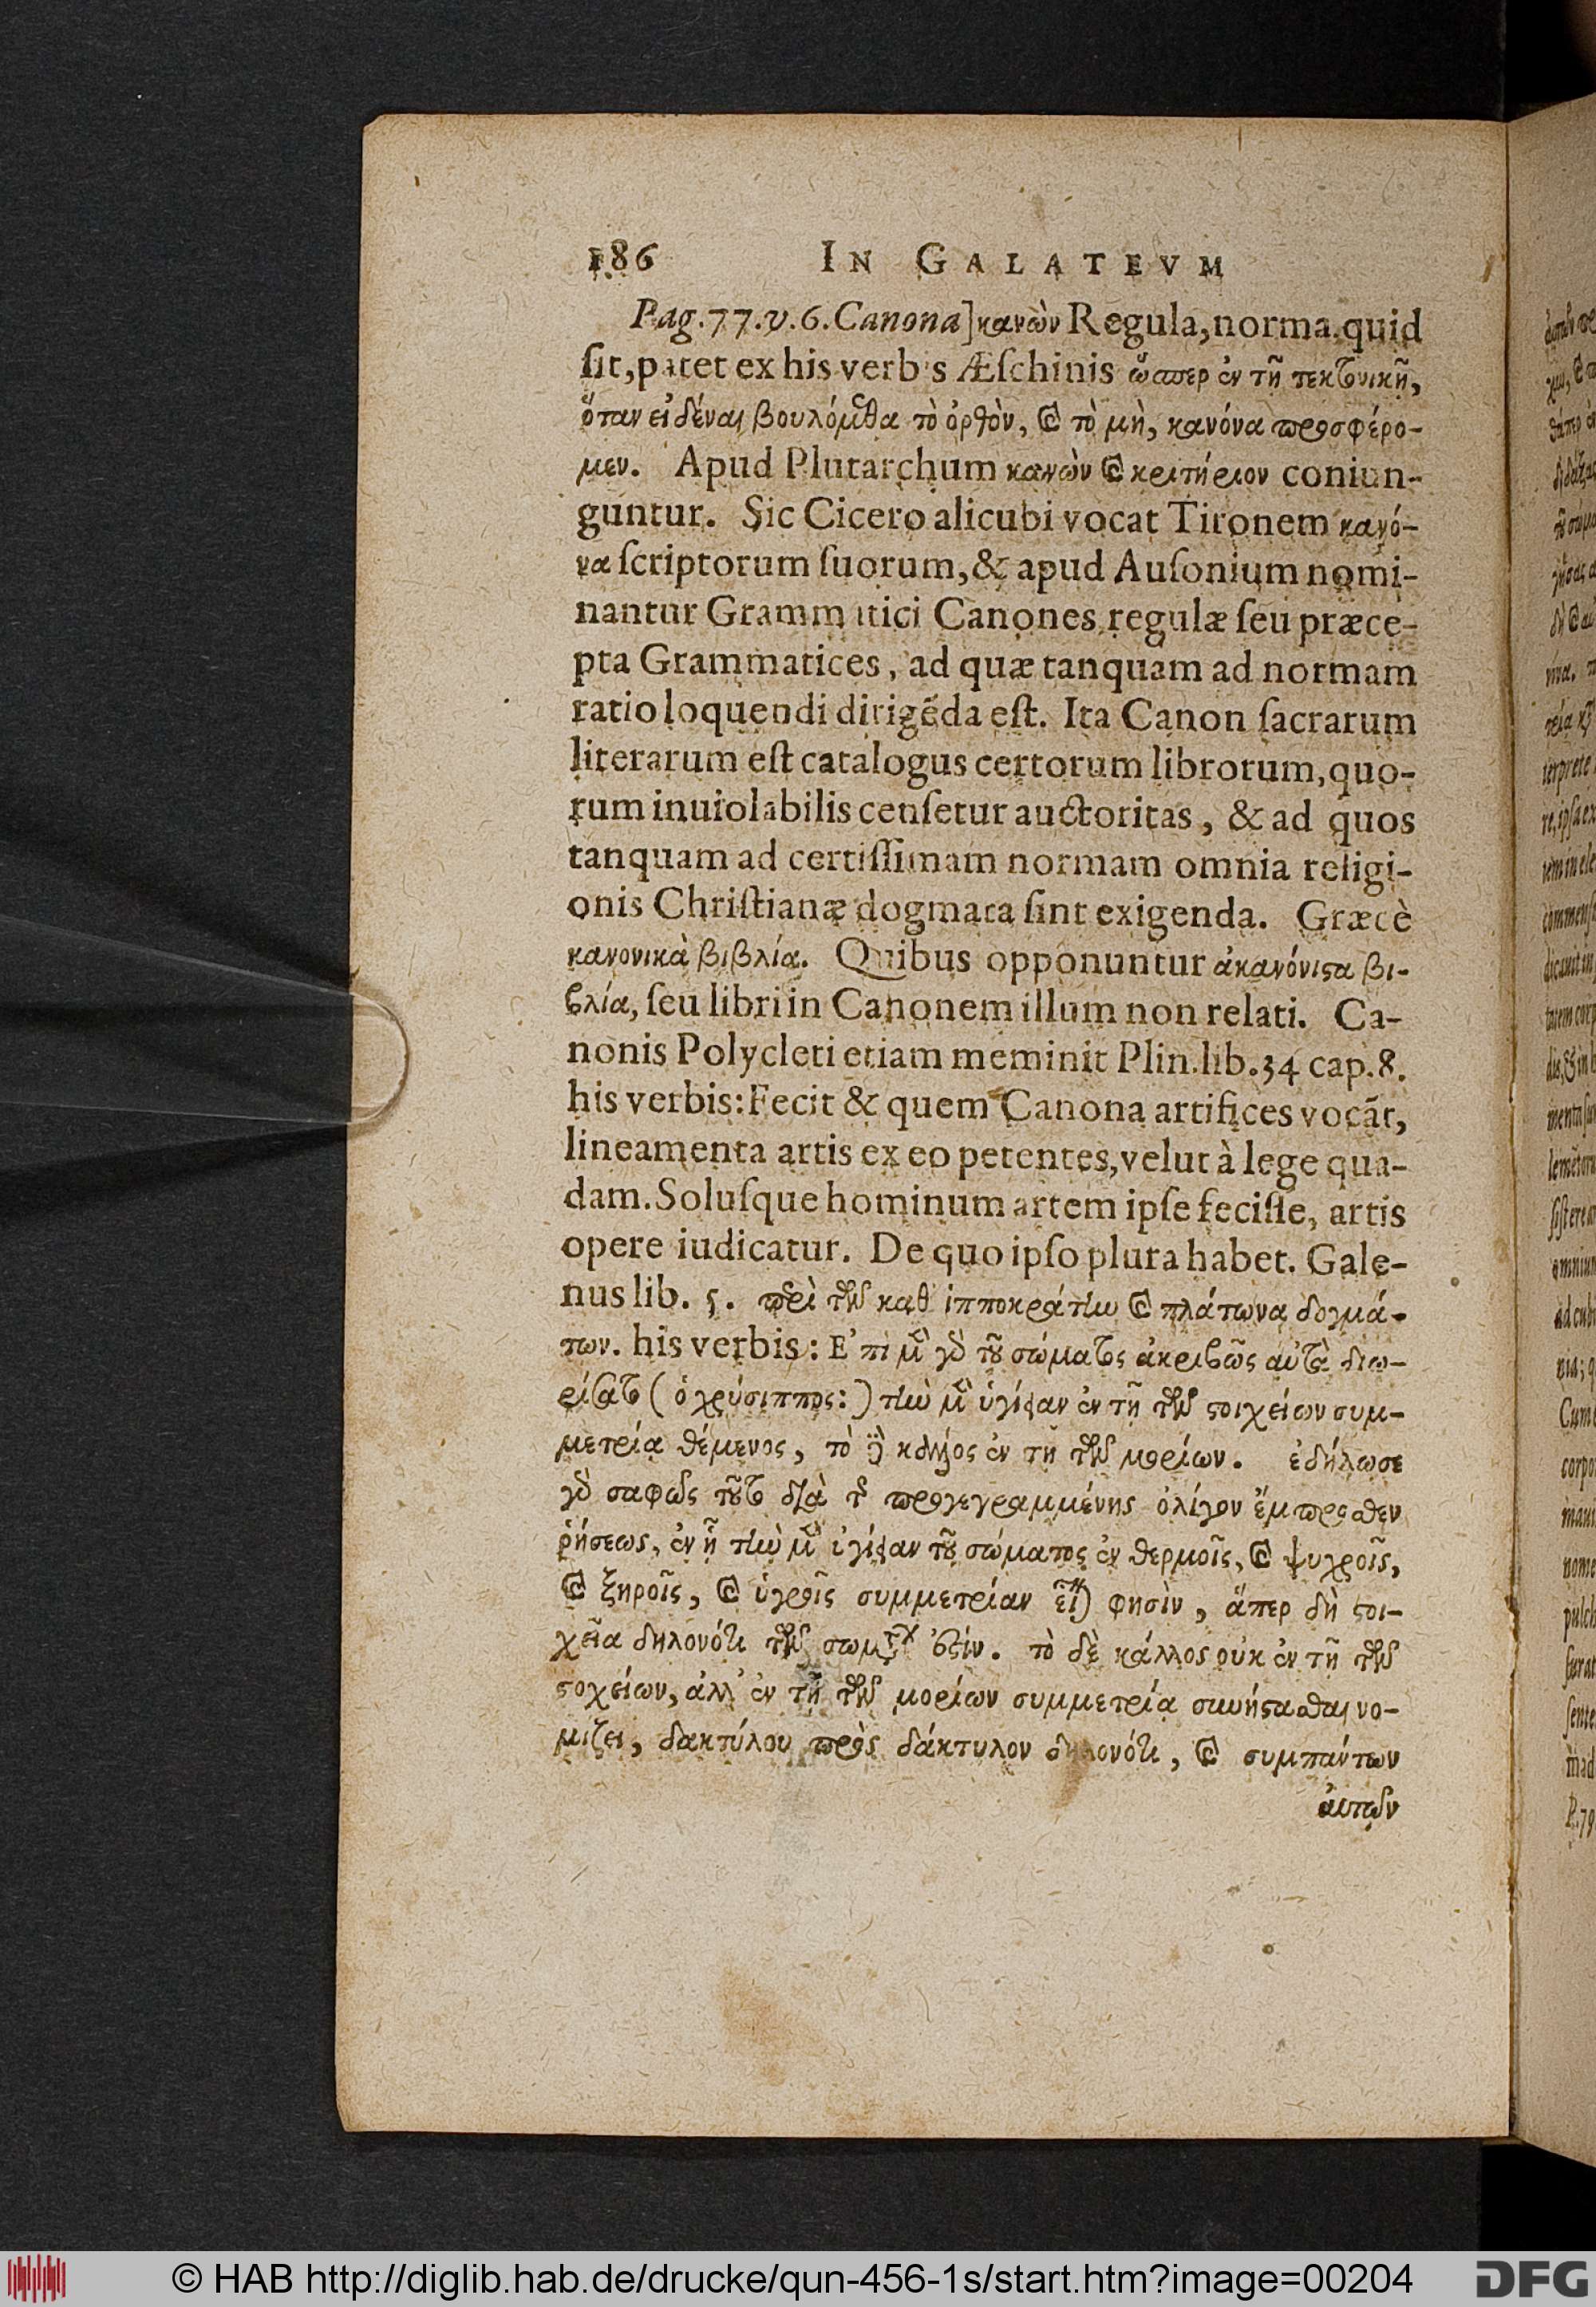 186 IN GALATEVM
Pag.77.v.6.Canona] κανὼν Regula, norma. quid
ſit, patet ex his verbis Æſchinis ὥσπερ ἐν τῇ τεκτονικῇ,
ὅταν εἰδέναι βουλόμεθα τὸ ὀρθὸν, καὶ τὸ μὴ, κανόνα προσφέρο-
μεν. Apud Plutarchum κανὼν καὶ κριτήριον coniun-
guntur. Sic Cicero alicubi vocat Tironem κανό-
να ſcriptorum ſuorum, & apud Auſonium nomi-
nantur Grammatici Canones regulæ ſeu præce-
pta Grammatices, ad quæ tanquam ad normam
ratio loquendi dirigẽda eſt. Ita Canon ſacrarum
literarum eſt catalogus certorum librorum, quo-
rum inuiolabilis cenſetur auctoritas, & ad quos
tanquam ad certiſſimam normam omnia religi-
onis Chriſtianæ dogmata ſint exigenda. Græcè
κανονικὰ βιβλία. Quibus opponuntur ἀκανόνιϛα βι-
βλία, ſeu libri in Canonem illum non relati. Ca-
nonis Polycleti etiam meminit Plin.lib.34 cap.8.
his verbis: Fecit & quem Canona artifices vocãt,
lineamenta artis ex eo petentes, velut à lege qua-
dam. Soluſque hominum artem ipſe feciſſe, artis
opere iudicatur. De quo ipſo plura habet. Gale-
nus lib. 5. περὶ τῶν καθ ἱπποκράτην καὶ πλάτωνα δογμά-
των. his verbis: Ἐπὶ μὲν γὰρ τοῦ σώματος ἀκριβῶς αὐτὰ διω-
ρίσατο (ὁ χρύσιππος:) τὴν μὲν ὑγίειαν ἐν τῇ τῶν ϛοιχείων συμ-
μετρίᾳ θέμενος, τὸ δὲ κάλλος ἐν τῇ τῶν μορίων. ἐδήλωσε
γὰρ σαφῶς τοῦτο διὰ τῆς προγεγραμμένης ὀλίγον ἔμπροσθεν
ῥήσεως, ἐν ᾗ τὴν μὲν ὑγίειαν τοῦ σώματος ἐν θερμοῖς, καὶ ψυχροῖς,
καὶ ξηροῖς, καὶ ὑγροῖς συμμετρίαν εἶναι φησὶν, ἅπερ δὴ ϛοι-
χεῖα δηλονότι τῶν σωμάτων ἐϛίν. τὸ δὲ κάλλος οὐκ ἐν τῇ τῶν
ϛοχείων, ἀλλ' ἐν τῇ τῶν μορίων συμμετρίᾳ συνήϛασθαι νο-
μίζει, δακτύλου πρὸς δάκτυλον δηλονότι, καὶ συμπάντων
ἀυτῶν
© HAB http://diglib.hab.de/drucke/qun-456-1s/start.htm?image=00204 DFG